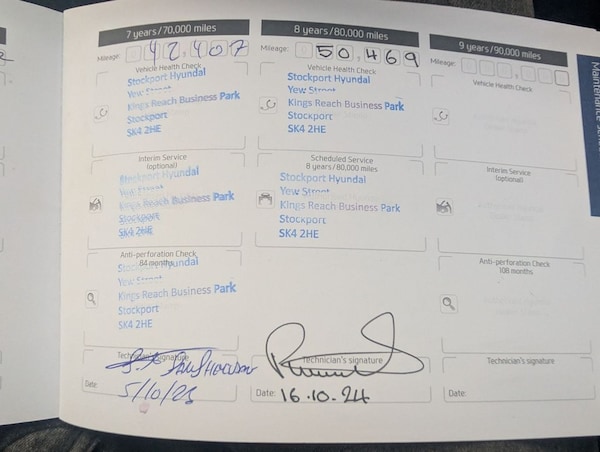 7 years/70,000 miles
Mileage: 42,407
Vehicle Health Check
Stockport Hyundai
Yew Street
Kings Reach Business Park
Stockport
SK4 2HE
Interim Service
(optional)
Stockport Hyundai
Yew Street
Kings Reach Business Park
Stockport
SK4 2HE
Anti-perforation Check
84 months
Stockport Hyundai
Yew Street
Kings Reach Business Park
Stockport
SK4 2HE
Technician's signature
Date: 5/10/23
8 years/80,000 miles
Mileage: 50,469
Vehicle Health Check
Stockport Hyundai
Yew Street
Kings Reach Business Park
Stockport
SK4 2HE
Scheduled Service
8 years/80,000 miles
Stockport Hyundai
Yew Street
Kings Reach Business Park
Stockport
SK4 2HE
Technician's signature
Date: 16.10.24
9 years/90,000 miles
Mileage:
Vehicle Health Check
Interim Service
(optional)
Anti-perforation Check
108 months
Technician's signature
Date:
Maintenance